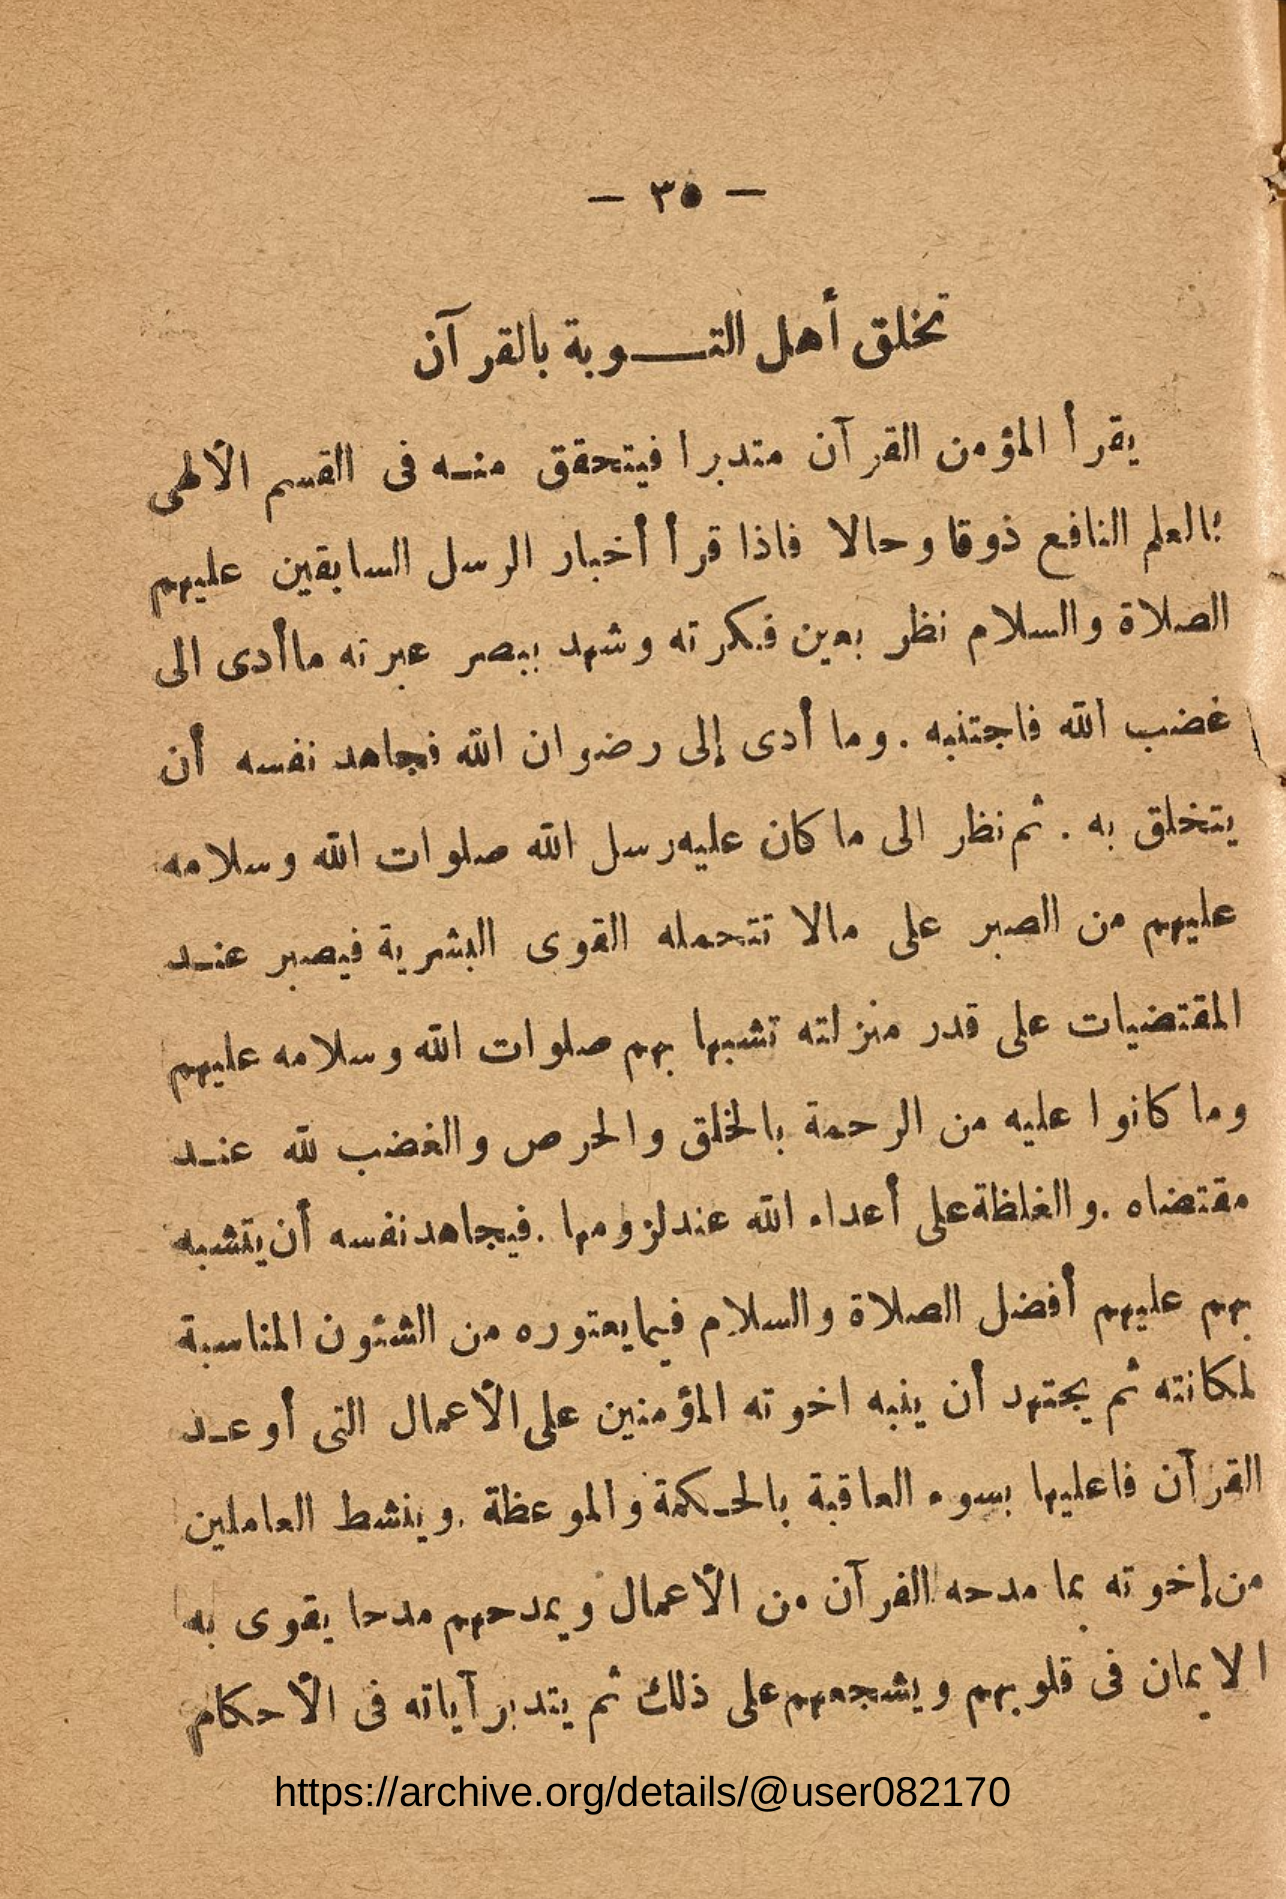 — ٣٥ —
تخلق أهل التـــوبة بالقرآن
يقرأ المؤمن القرآن متدبرا فيتحقق منـه فى القسم الألهى
بالعلم النافع ذوقا وحالا فاذا قرأ أخبار الرسل السابقين عليهم
الصلاة والسلام نظر بعين فكرته وشهد ببصر عبرته ماأدى الى
غضب الله فاجتنبه . وما أدى إلى رضوان الله فجاهد نفسه أن
يتخلق به . ثم نظر الى ما كان عليه رسل الله صلوات الله وسلامه
عليهم من الصبر على مالا تتحمله القوى البشرية فيصبر عنـد
المقتضيات على قدر منزلته تشبها بهم صلوات الله وسلامه عليهم
وما كانوا عليه من الرحمة بالخلق والحرص والغضب لله عنـد
مقتضاه . والغلظة على أعداء الله عند لزومها . فيجاهد نفسه أن يتشبه
بهم عليهم أفضل الصلاة والسلام فيما يعتوره من الشئون المناسبة
لمكانته ثم يجتهد أن ينبه اخوته المؤمنين على الأعمال التى أوعـد
القرآن فاعليها بسوء العاقبة بالحـكمة والموعظة . وينشط العاملين
من إخوته بما مدحه القرآن من الأعمال ويمدحهم مدحا يقوى به
الايمان فى قلوبهم ويشجعهم على ذلك ثم يتدبر آياته فى الأحكام
https://archive.org/details/@user082170